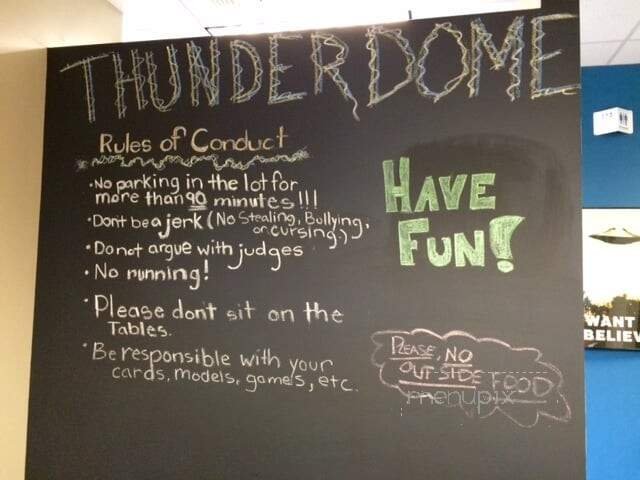 THUNDERDOME
Rules of Conduct
• No parking in the lot for
more than 90 minutes!!!
• Dont be a jerk (No Stealing, Bullying,
or cursing,)
• Do not argue with judges
• No running!
• Please dont sit on the
Tables.
• Be responsible with your
cards, models, games, etc.
HAVE
FUN!
PLEASE, NO
OUTSIDE FOOD
menupix
WANT
BELIEV